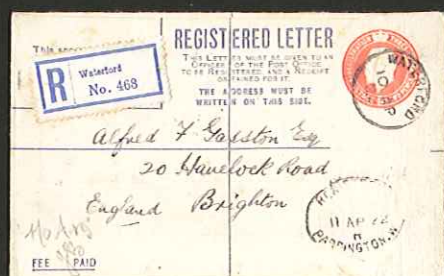 REGISTERED LETTER
THIS LETTER MUST BE GIVEN TO AN
OFFICER OF THE POST OFFICE
TO BE REGISTERED, AND A RECEIPT
OBTAINED FOR IT.
THE ADDRESS MUST BE
WRITTEN ON THIS SIDE.
R
Waterford
No. 468
WATERFORD
Alfred F Gasston Esq
20 Havelock Road
England Brighton
11 AP 22
PADDINGTON. W
FEE PAID